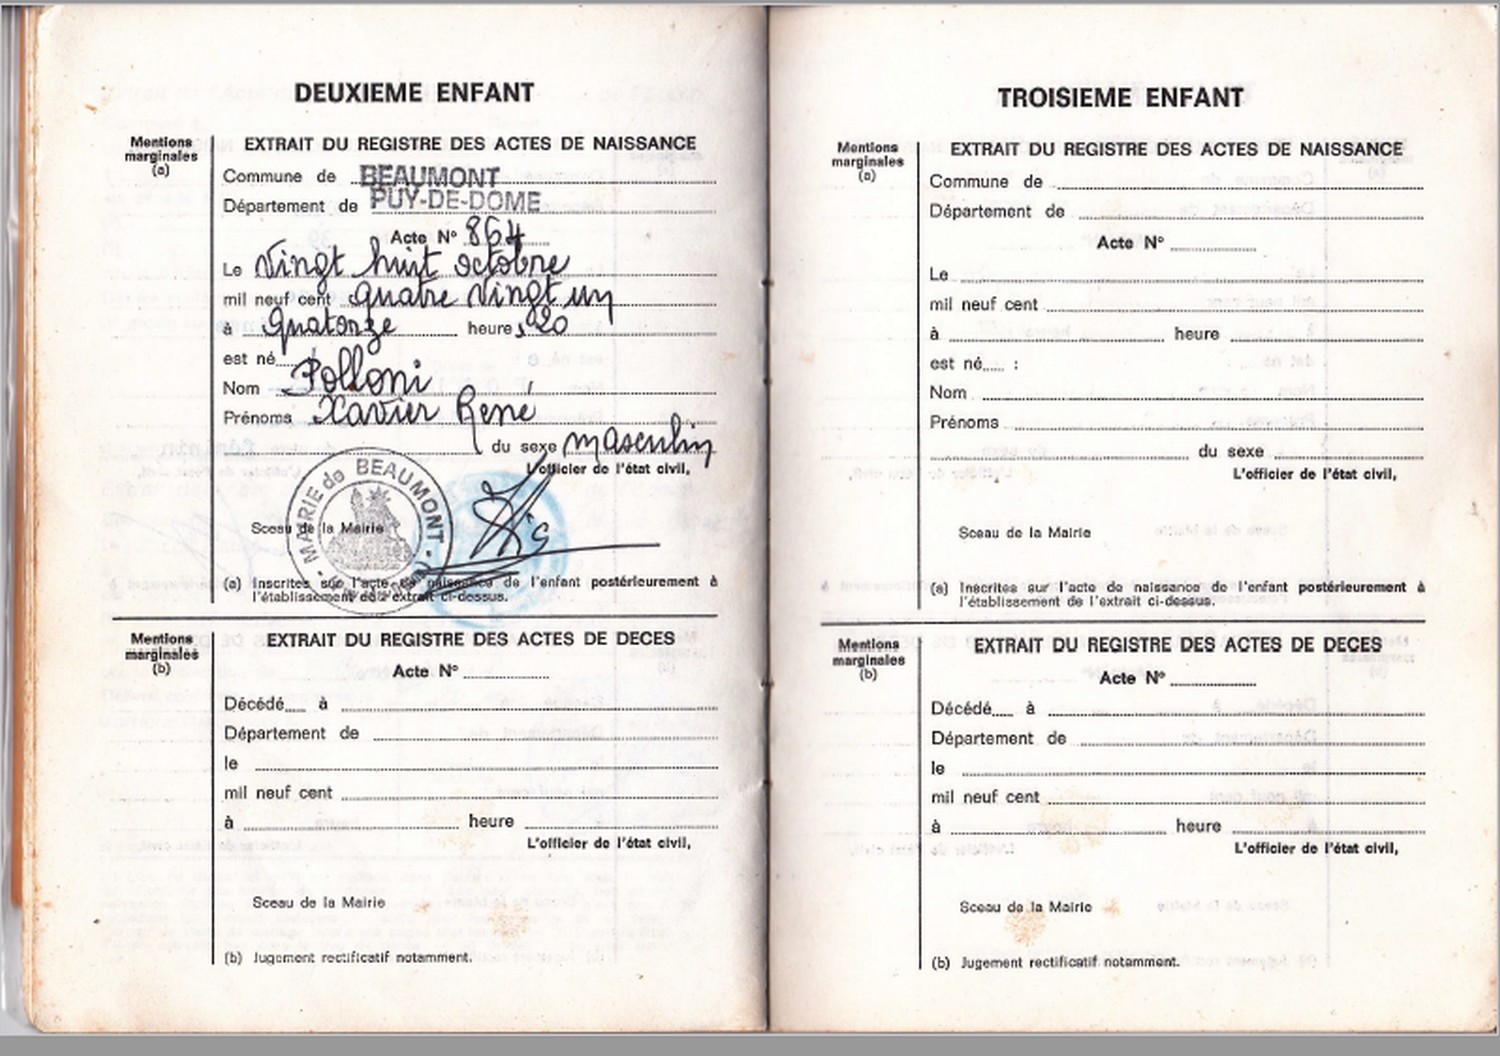 DEUXIEME ENFANT
Mentions
marginales
(a)
EXTRAIT DU REGISTRE DES ACTES DE NAISSANCE
Commune de BEAUMONT
Département de PUY-DE-DOME
Acte Nº 864
Le Vingt huit octobre
mil neuf cent quatre vingt un
à quatorze heures 20
est né
Nom Polloni
Prénoms Xavier René
du sexe masculin
L'officier de l'état civil,
MAIRIE de BEAUMONT
Sceau de la Mairie
(a) Inscrites sur l'acte de naissance de l'enfant postérieurement à
l'établissement de l'extrait ci-dessus.
Mentions
marginales
(b)
EXTRAIT DU REGISTRE DES ACTES DE DECES
Acte Nº
Décédé à
Département de
le
mil neuf cent
à heure
L'officier de l'état civil,
Sceau de la Mairie
(b) Jugement rectificatif notamment.
TROISIEME ENFANT
Mentions
marginales
(a)
EXTRAIT DU REGISTRE DES ACTES DE NAISSANCE
Commune de
Département de
Acte Nº
Le
mil neuf cent
à heure
est né :
Nom
Prénoms
du sexe
L'officier de l'état civil,
Sceau de la Mairie
(a) Inscrites sur l'acte de naissance de l'enfant postérieurement à
l'établissement de l'extrait ci-dessus.
Mentions
marginales
(b)
EXTRAIT DU REGISTRE DES ACTES DE DECES
Acte Nº
Décédé à
Département de
le
mil neuf cent
à heure
L'officier de l'état civil,
Sceau de la Mairie
(b) Jugement rectificatif notamment.